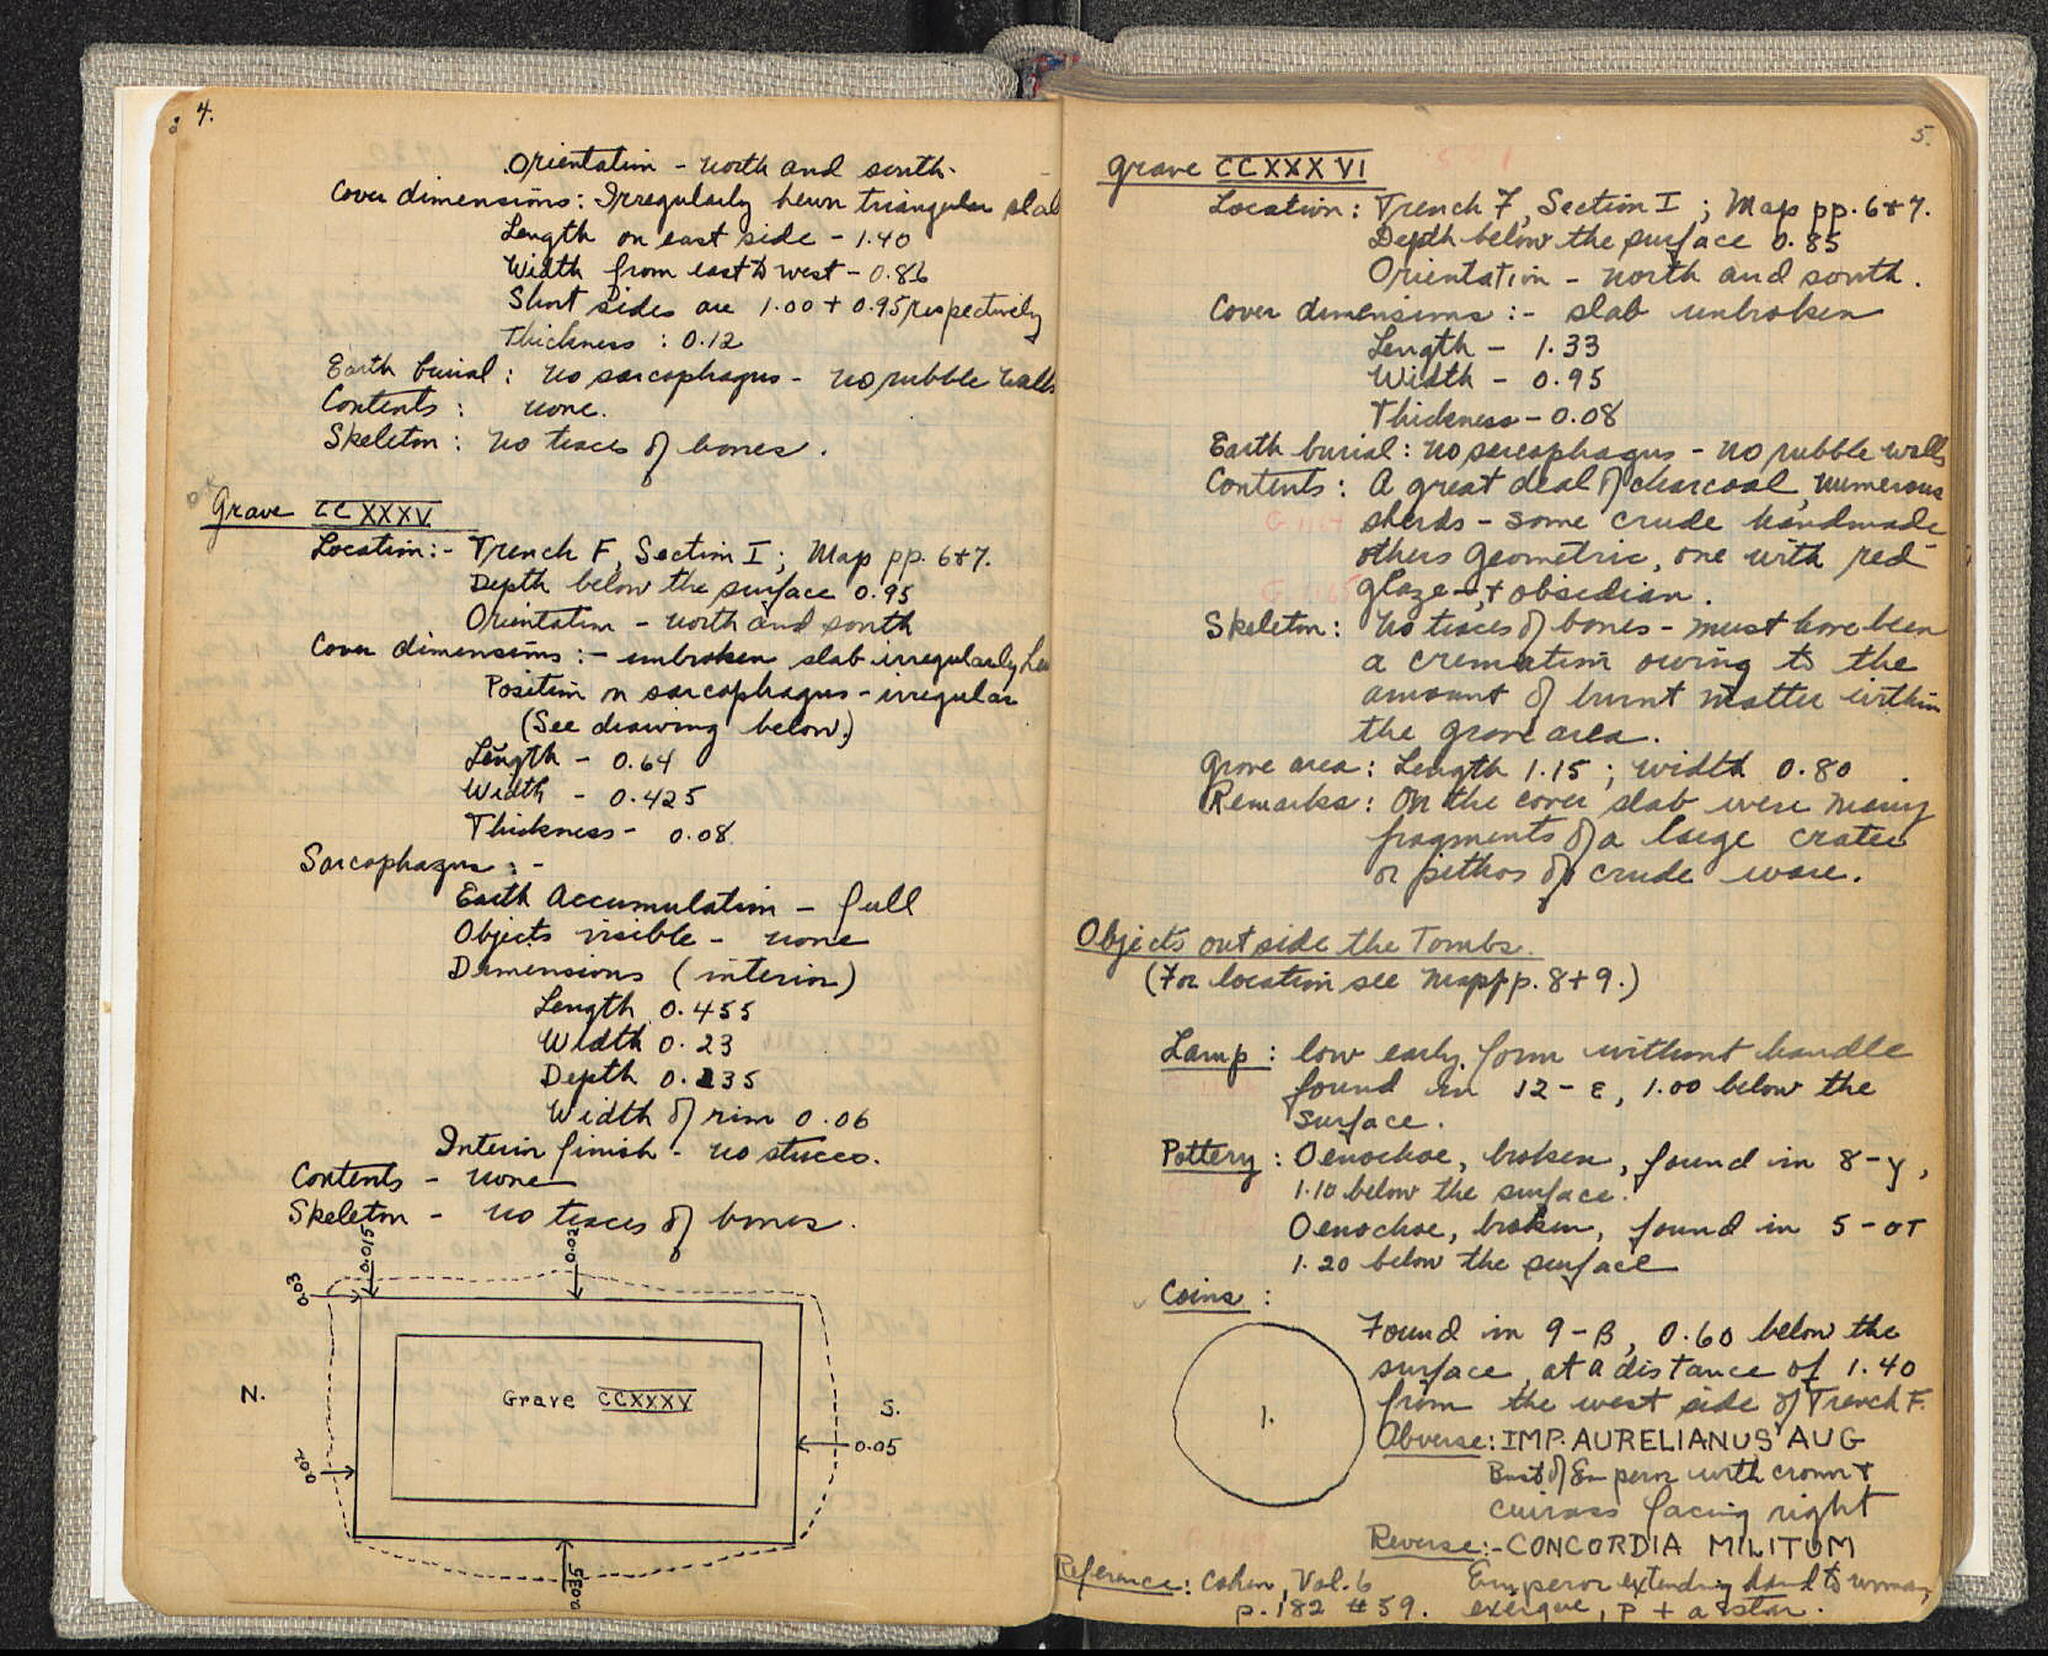 4.
Orientation - north and south.
Cover dimensions: Irregularly hewn triangular slab
Length on east side - 1.40
Width from east to west - 0.86
Short sides are 1.00 + 0.95 respectively
Thickness : 0.12
Earth burial : no sarcophagus - no rubble walls
Contents : none.
Skeleton : no traces of bones.
Grave CCXXXV
Location:- Trench F, Section I; Map pp. 6+7.
Depth below the surface 0.95
Orientation - north and south
Cover dimensions :- unbroken slab irregularly
Position on sarcophagus - irregular
(See drawing below.)
Length - 0.64
Width - 0.425
Thickness - 0.08
Sarcophagus : -
Earth Accumulation - full
Objects visible - none
Dimensions (interior)
Length 0.455
Width 0.23
Depth 0.235
Width of rim 0.06
Interior finish - no stucco.
Contents - none
Skeleton - no traces of bones.
0.03
0.015
0.02
N.
Grave CCXXXV
S.
0.05
0.02
0.035
5.
Grave CCXXXVI
Location: Trench F, Section I ; Map pp. 6+7.
Depth below the surface 0.85
Orientation - north and south.
Cover dimensions :- slab unbroken
Length - 1.33
Width - 0.95
Thickness - 0.08
Earth burial : no sarcophagus - no rubble walls
Contents : A great deal of charcoal, numerous
sherds - some crude handmade
others Geometric, one with red
glaze -, + obsidian.
Skeleton : No traces of bones - must have been
a cremation owing to the
amount of burnt matter within
the grave area.
Grave area : Length 1.15 ; width 0.80
Remarks : On the cover slab were many
fragments of a large crater
or pithos of crude ware.
Objects outside the Tombs.
(For location see Map pp. 8+9.)
Lamp : low early form without handle
found in 12-ε, 1.00 below the
surface.
Pottery : Oenochoe, broken, found in 8-γ,
1.10 below the surface.
Oenochoe, broken, found in 5-στ
1.20 below the surface
Coins :
1.
Found in 9-β, 0.60 below the
surface, at a distance of 1.40
from the west side of Trench F.
Obverse: IMP. AURELIANUS AUG
Bust of Emperor with crown +
cuirass facing right
Reverse:- CONCORDIA MILITUM
Emperor extending hand to woman,
exergue, P + a star.
Reference: Cohen, Vol. 6
p. 182 #59.